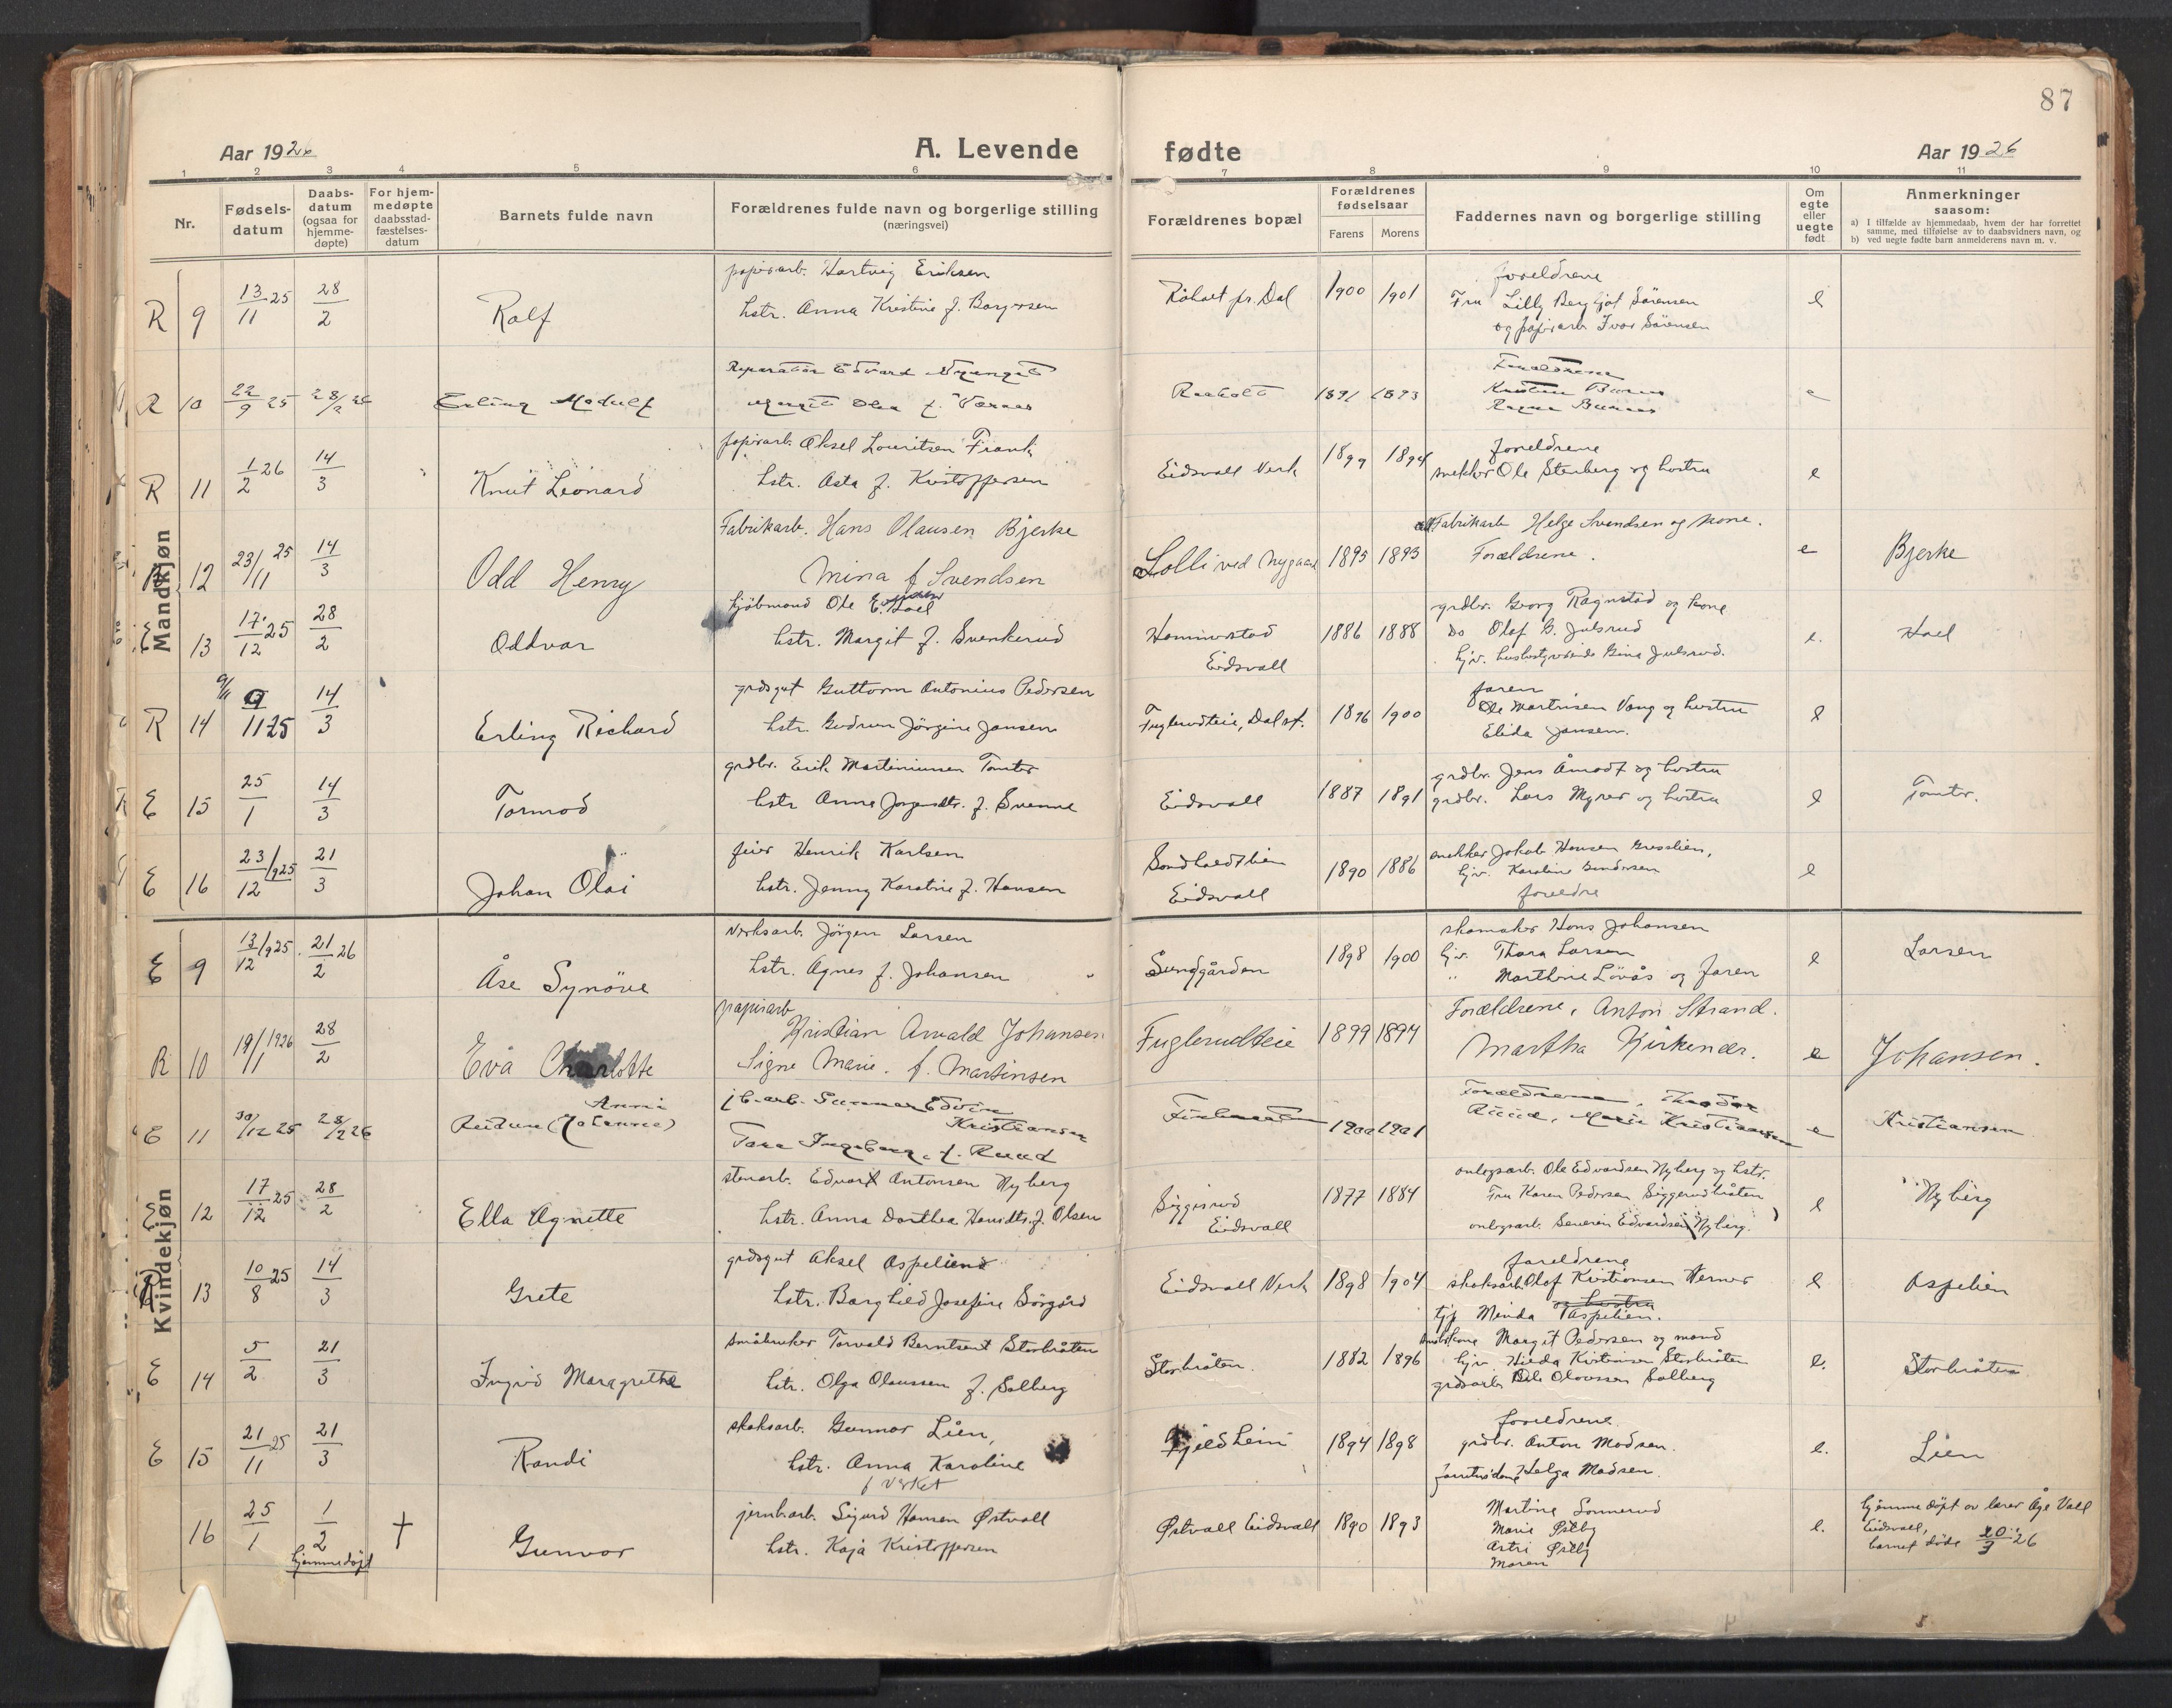 87
Aar 1926
A. Levende
fødte
Aar 1926
1 2 3 4 5 6 7 8 9 10 11
Nr.
Fødsels-
datum
Daabs-
datum
(ogsaa for
hjemme-
døpte)
For hjem-
medøpte
daabsstad-
fæstelses-
datum
Barnets fulde navn
Forældrenes fulde navn og borgerlige stilling
(næringsvei)
Forældrenes bopæl
Forældrenes
fødselsaar
Farens Morens
Faddernes navn og borgerlige stilling
Om
egte
eller
uegte
født
Anmerkninger
saasom:
a) I tilfælde av hjemmedaab, hvem der har forrettet
samme, med tilføielse av to daabsvidners navn, og
b) ved uegte fødte barn anmelderens navn m. v.
Mandkjøn
R 9 13/11 25 28/2 Rolf
papirarb. Hartvig Eriksen
hstr. Anna Kristine f. Borgersen
Råholt pr. Dal 1900 1901
foreldrene
Fru Lilly Bergljot Sørensen
og papirarb. Ivar Sørensen
e
R 10 22/9 25 28/2 26 Erling Modulf
Reparatør Edvard
Olea f.
Raaholt 1891 1893
Forældrene
e
R 11 1/2 26 14/3 Knut Leonard
papirarb. Aksel Lauritsen Frank
hstr. Asta f. Kristoffersen
Eidsvall Verk 1899 1894
foreldrene
snekker Ole Stenberg og hustru
e
R 12 23/11 25 14/3 Odd Henry
Fabrikarb. Hans Olausen Bjerke
Mina f Svendsen
Lolli ved Nygaard 1895 1893
Fabrikarb Helge Svendsen og kone.
Forældrene.
e Bjerke
E 13 17/12 25 28/2 Oddvar
kjøbmand Ole E. Hoel
hstr. Margit f. Svenkerud
Hammerstad
Eidsvall
1886 1888
grdbr. Georg Ragnstad og kone
Do Olaf B. Julsrud
hjv. husbestyrende Gina Julsrud.
e. Hoel
R 14 9/11 9/11 25 14/3 Erling Richard
grdsgut Guttorm Antonius Pedersen
hstr. Gudrun Jørgine Jansen
Fuglerudteie, Dal st. 1896 1900
faren
Ole Martinsen Vang og hustru
Elida Jansen.
e
E 15 25/1 14/3 Tormod
grdbr. Erik Martiniusen Tomter
hstr Anna Jørgensdtr. f. Svenne
Eidsvall 1887 1891
grdbr. Jens Åmodt og hustru
grdbr. Lars Myrer og hustru
e Tomter.
E 16 23/12 1925 21/3 Johan Olai
feier Henrik Karlsen
hstr. Jenny Karoline f. Hansen
Eidsvall
1890 1886
snekker Jakob Hansen Greselien,
hjv. Karoline Gundersen
foreldre
e
Kvindekjøn
E 9 13/12 1925. 21/2 26 Åse Synöve
verksarb. Jörgen Larsen
hstr. Agnes f. Johansen
Sundgården 1898 1900
skomaker Hans Johansen
hjv. Thora Larsen
" Marthine Lövås og faren
e Larsen
R 10 19/11 1926 28/2 Eva Charlotte
papirarb
Kristian Arvald Johansen
Signe Marie. f. Martinsen
Fuglerudteie 1899 1894
Forældrene, Anton Strand.
Martha Kirkener.
e Johansen.
E 11 30/12 25 28/2 26 Anni
Reidun (Johanne)
jb. arb. Gunnar Edvin
Kristiansen
Tora Ingeborg. f. Ruud
1900 1901
Forældrene, Theodor
Ruud, Marie Kristiansen
e Kristiansen
E 12 17/12 25 28/2 Ella Agnette
stenarb. Edvart Antonsen Nyberg
hstr. Anna Dorthea Hansdtr. f. Olsen
Siggerud
Eidsvall
1877 1884
anlegsarb. Ole Edvardsen Nyberg og hstr.
Fru Karen Pedersen Siggerudbråten
anlegsarb. Severin Edvardsen Nyberg.
e Nyberg
R 13 10/8 25 14/3 Grete
grdsgut Aksel Aspeliend
hstr. Borghild Josefine Sörgård
Eidsvall Verk 1898 1904
foreldrene
skoksarb. Olaf Kristiansen Herner
og hustru
tjp Minda Aspelien.
e Aspelien
E 14 5/2 21/3 Ingrid Margrethe
småbruker Torvald Berntsent Storbråten
hstr. Olga Olaussen f. Solberg
Storbråten. 1882 1896
småbr.kone Margit Pedersen og mand
hjv. Hilda Kristiansen Storbråten
grdsarb. Ole Olaussen Solberg
e. Storbråten
E 15 21/11 25 21/3 Randi
skoksarb. Gunnar Lien,
hstr. Anna Karoline
f Verket
Fjeldheim 1894 1898
foreldrene.
grdbr. Anton Madsen.
Helga Madsen.
e. Lien
16 25/1 1/2 † Gunvor
hjemmedøpt
jernb.arb. Sigurd Hansen Østvoll
hstr. Kaja Kristoffersen
Østvall Eidsvall 1890 1893
Martine Sonnerud
Marie Østby
Astri Østby
Moren
e.
hjemmedøpt av lærer Åge Vall
Eidsvall,
barnet døde 20/3 26